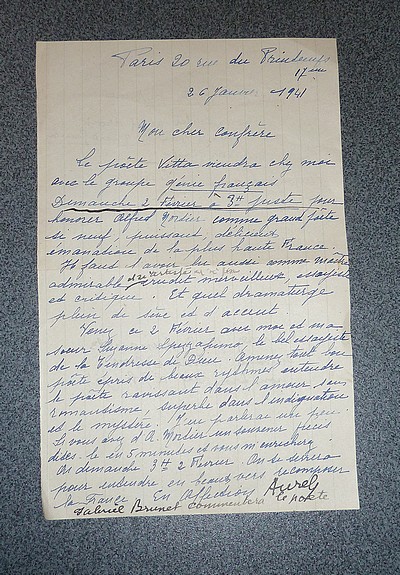 Paris 20 rue du Printemps
17ème
26 Janvier 1941
Mon cher confrère
Le poète Vitta viendra chez moi
avec le groupe génie français
Dimanche 2 Février à 3H juste pour
honorer Alfred Mortier comme grand poète
si neuf, puissant, délicieux
émanation de la plus haute France.
Il faut l'avoir lu aussi comme
admirable érudit merveilleux, essayiste
et critique. Et quel dramaturge
plein de sève et d'accent
Venez ce 2 Février avec moi et ma
soeur Suzanne le bel essayiste
de la Tendresse de Dieu. Amenez tout bon
poète épris de beaux rythmes entendre
le poète ravissant dans l'amour sans
romantisme, superbe dans l'indignation
et le mystère. J'en parlerai un peu.
Si vous avez d'A. Mortier un souvenir précis
dites-le en 5 minutes et vous m'enrichirez
On dimanche 3H 2 Février. On se serrera
pour entendre en beaux vers recomposer
la France. En affection Aurel
Gabriel Brunet commentera le poète